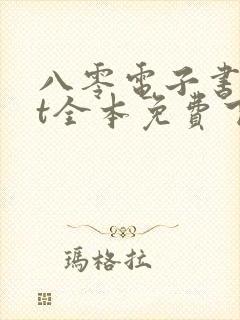 八零電子書
t全本免費
瑪格拉